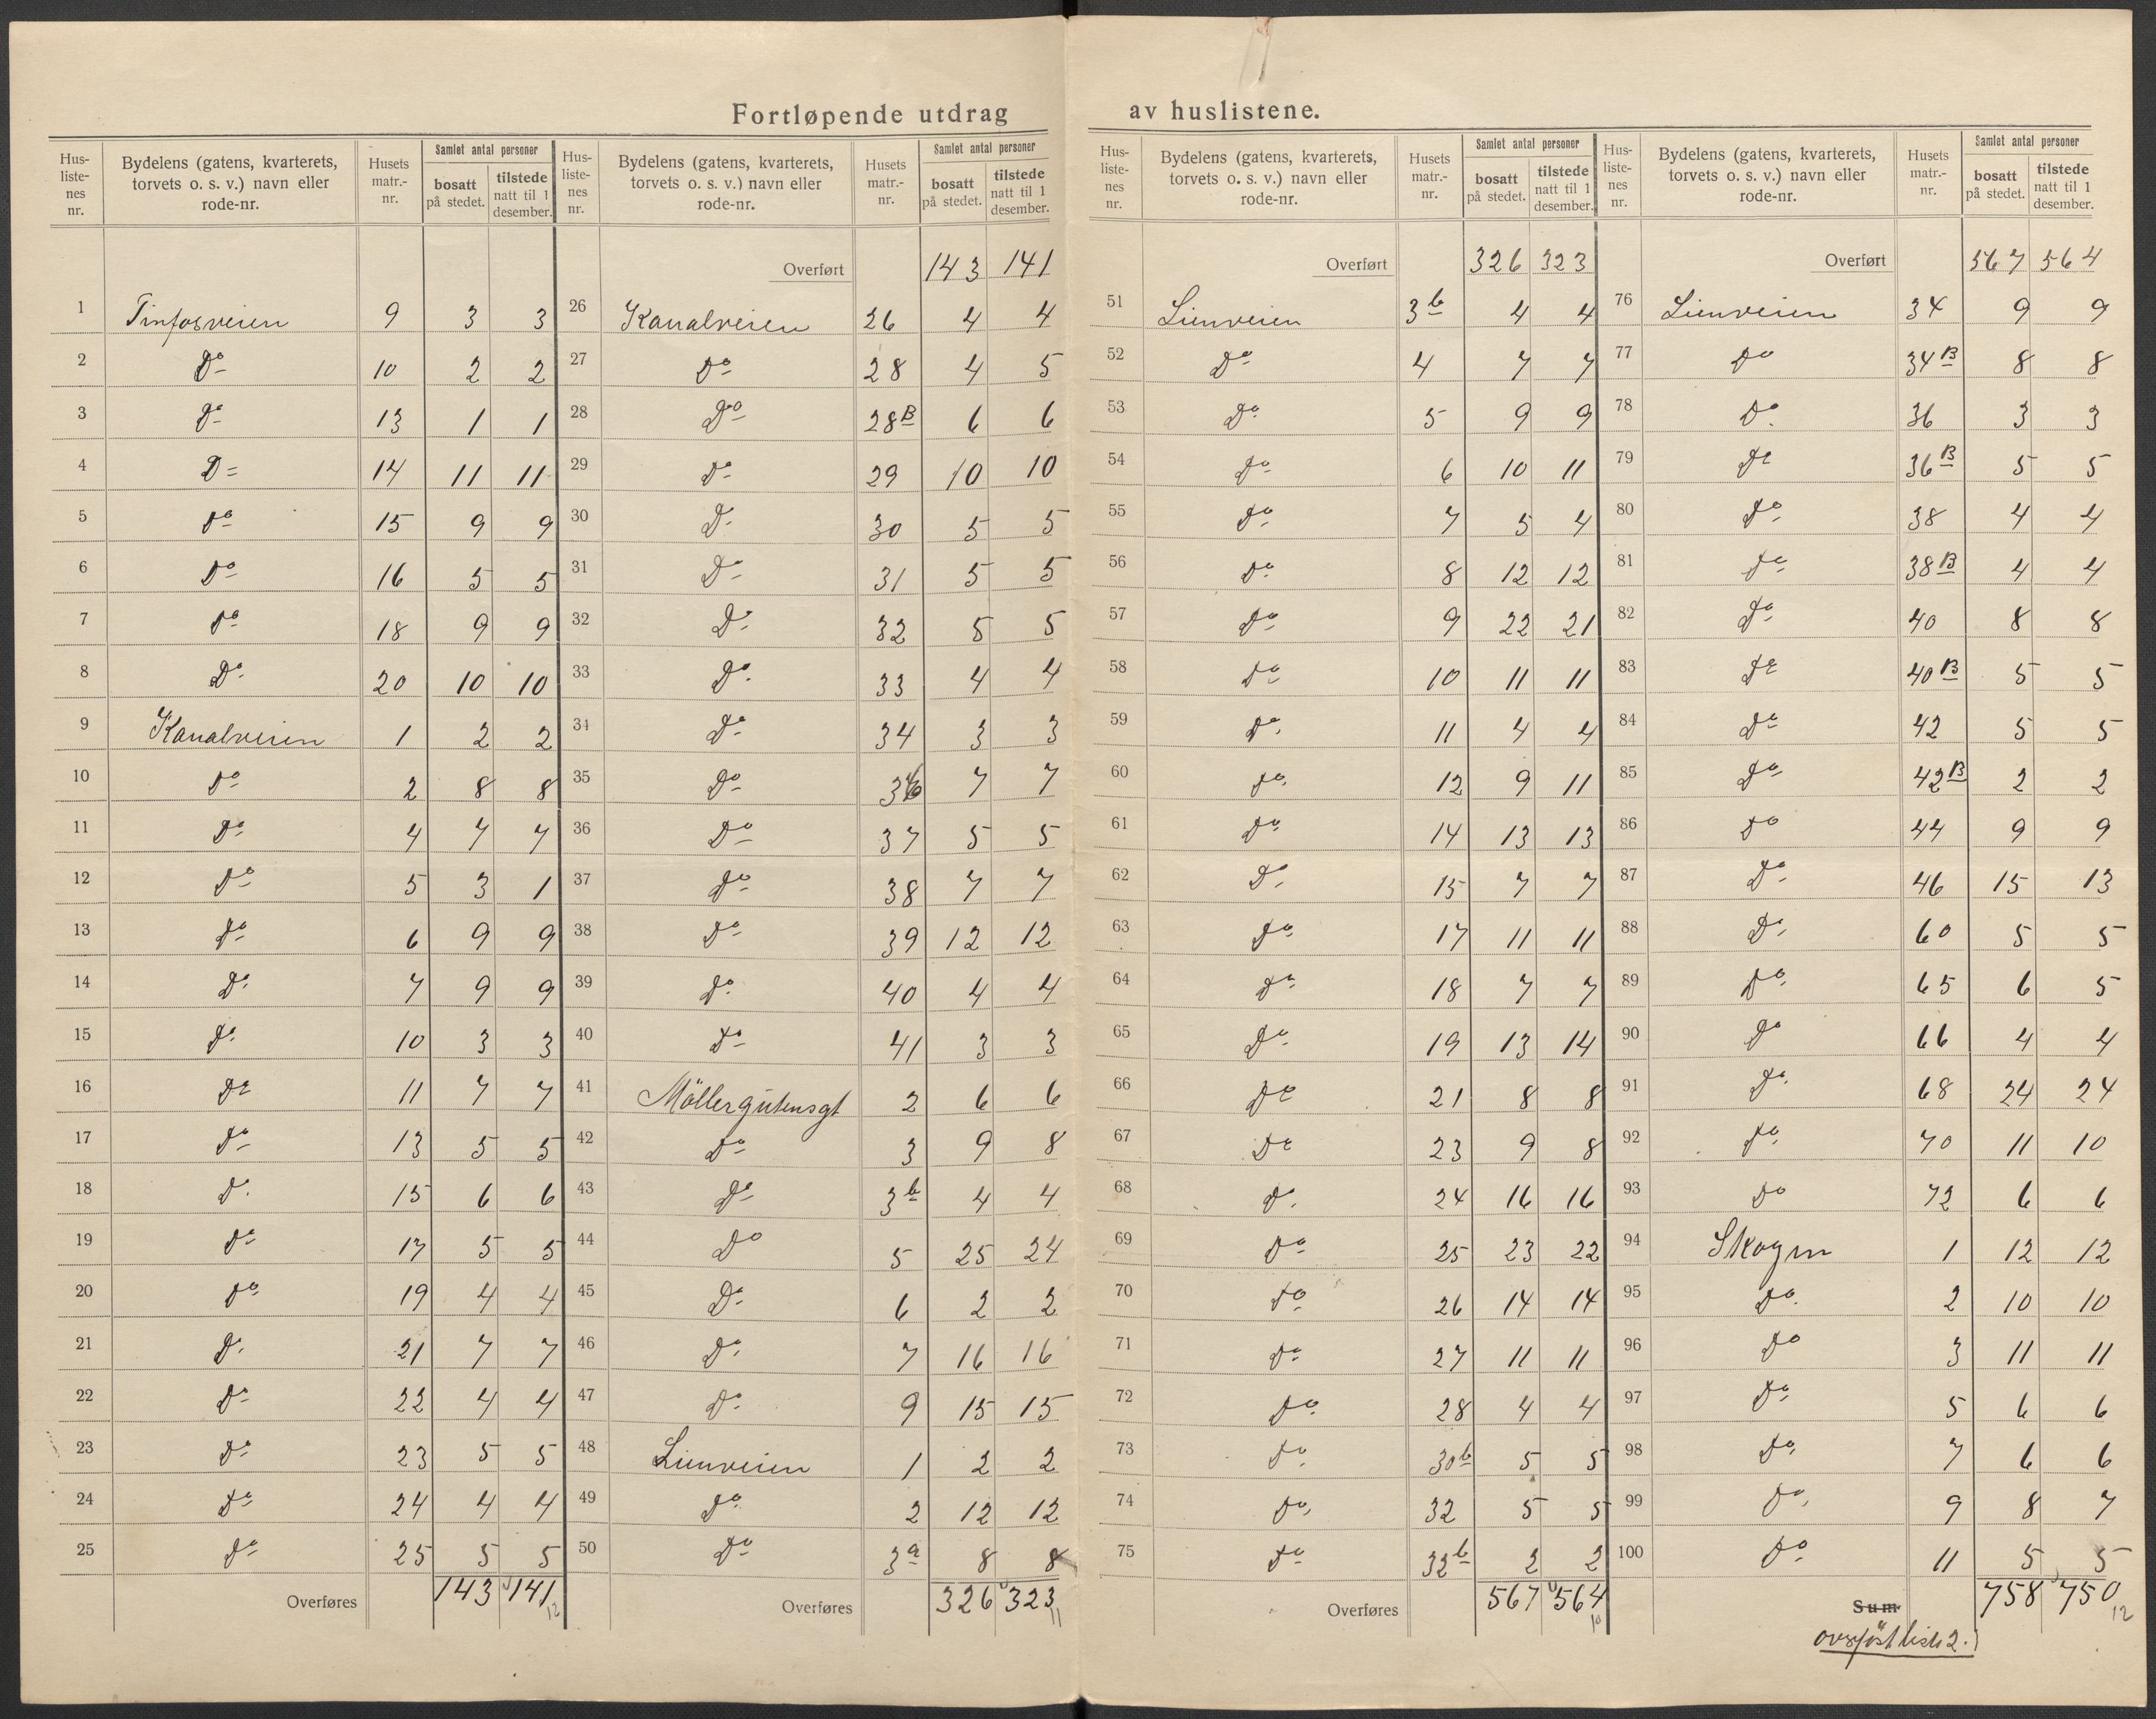 Fortløpende utdrag av huslistene.
Hus-listenes nr. | Bydelens (gatens, kvarterets, torvets o. s. v.) navn eller rode-nr. | Husets matr.-nr. | Samlet antal personer bosatt på stedet. | tilstede natt til 1 desember.
1 Tinfosveien 9 3 3
2 Do 10 2 2
3 Do 13 1 1
4 D= 14 11 11
5 Do 15 9 9
6 Do 16 5 5
7 Do 18 9 9
8 Do 20 10 10
9 Kanalveien 1 2 2
10 Do 2 8 8
11 Do 4 7 7
12 Do 5 3 1
13 Do 6 9 9
14 Do 7 9 9
15 Do 10 3 3
16 Do 11 7 7
17 Do 13 5 5
18 Do 15 6 6
19 Do 17 5 5
20 Do 19 4 4
21 Do 21 7 7
22 Do 22 4 4
23 Do 23 5 5
24 Do 24 4 4
25 Do 25 5 5
Overføres 143 141
12
Hus-listenes nr. | Bydelens (gatens, kvarterets, torvets o. s. v.) navn eller rode-nr. | Husets matr.-nr. | Samlet antal personer bosatt på stedet. | tilstede natt til 1 desember.
Overført 143 141
26 Kanalveien 26 4 4
27 Do 28 4 5
28 Do 28B 6 6
29 Do 29 10 10
30 Do 30 5 5
31 Do 31 5 5
32 Do 32 5 5
33 Do 33 4 4
34 Do 34 3 3
35 Do 36 7 7
36 Do 37 5 5
37 Do 38 7 7
38 Do 39 12 12
39 Do 40 4 4
40 Do 41 3 3
41 Möllergutensgt 2 6 6
42 Do 3 9 8
43 Do 3b 4 4
44 Do 5 25 24
45 Do 6 2 2
46 Do 7 16 16
47 Do 9 15 15
48 Lienveien 1 2 2
49 Do 2 12 12
50 Do 3a 8 8
Overføres 326 323
11
Hus-listenes nr. | Bydelens (gatens, kvarterets, torvets o. s. v.) navn eller rode-nr. | Husets matr.-nr. | Samlet antal personer bosatt på stedet. | tilstede natt til 1 desember.
Overført 326 323
51 Lienveien 3b 4 4
52 Do 4 7 7
53 Do 5 9 9
54 Do 6 10 11
55 Do 7 5 4
56 Do 8 12 12
57 Do 9 22 21
58 Do 10 11 11
59 Do 11 4 4
60 Do 12 9 11
61 Do 14 13 13
62 Do 15 7 7
63 Do 17 11 11
64 Do 18 7 7
65 Do 19 13 14
66 Do 21 8 8
67 Do 23 9 8
68 Do 24 16 16
69 Do 25 23 22
70 Do 26 14 14
71 Do 27 11 11
72 Do 28 4 4
73 Do 30b 5 5
74 Do 32 5 5
75 Do 32b 2 2
Overføres 567 564
10
Hus-listenes nr. | Bydelens (gatens, kvarterets, torvets o. s. v.) navn eller rode-nr. | Husets matr.-nr. | Samlet antal personer bosatt på stedet. | tilstede natt til 1 desember.
Overført 567 564
76 Lienveien 34 9 9
77 Do 34B 8 8
78 Do 36 3 3
79 Do 36B 5 5
80 Do 38 4 4
81 Do 38B 4 4
82 Do 40 8 8
83 Do 40B 5 5
84 Do 42 5 5
85 Do 42B 2 2
86 Do 44 9 9
87 Do 46 15 13
88 Do 60 5 5
89 Do 65 6 5
90 Do 66 4 4
91 Do 68 24 24
92 Do 70 11 10
93 Do 72 6 6
94 Skogen 1 12 12
95 Do 2 10 10
96 Do 3 11 11
97 Do 5 6 6
98 Do 7 6 6
99 Do 9 8 7
100 Do 11 5 5
Sum 758 750
12
overføst liste 2.